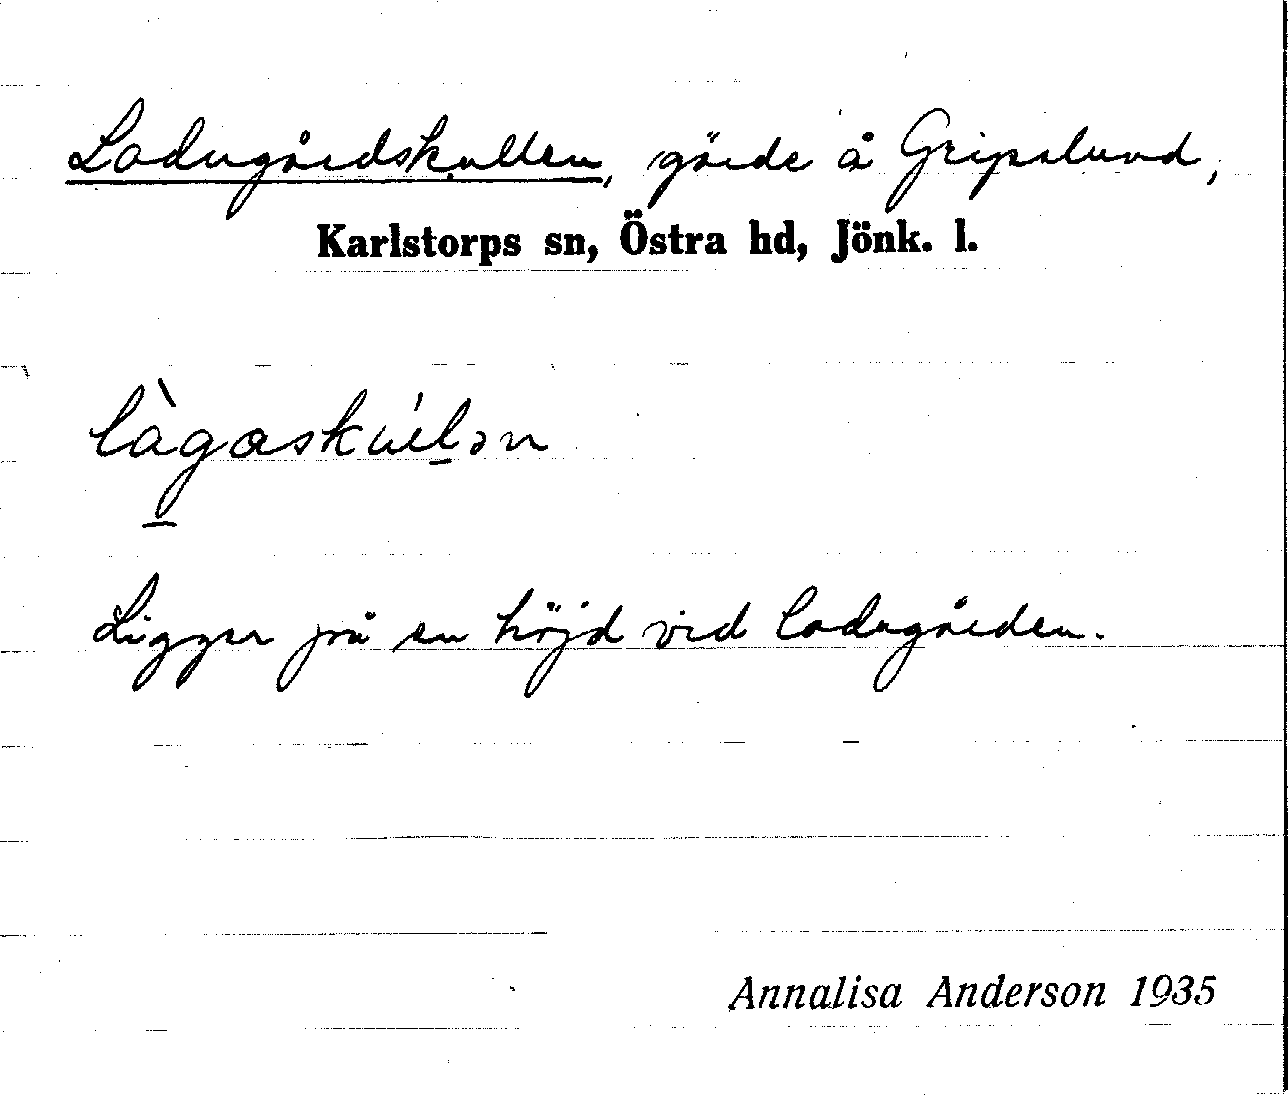 Ladugårdskullen, gärde å Gripslund,
Karlstorps sn, Östra hd, Jönk. l.
Ligger på en höjd vid ladugården.
Annalisa Anderson 1935